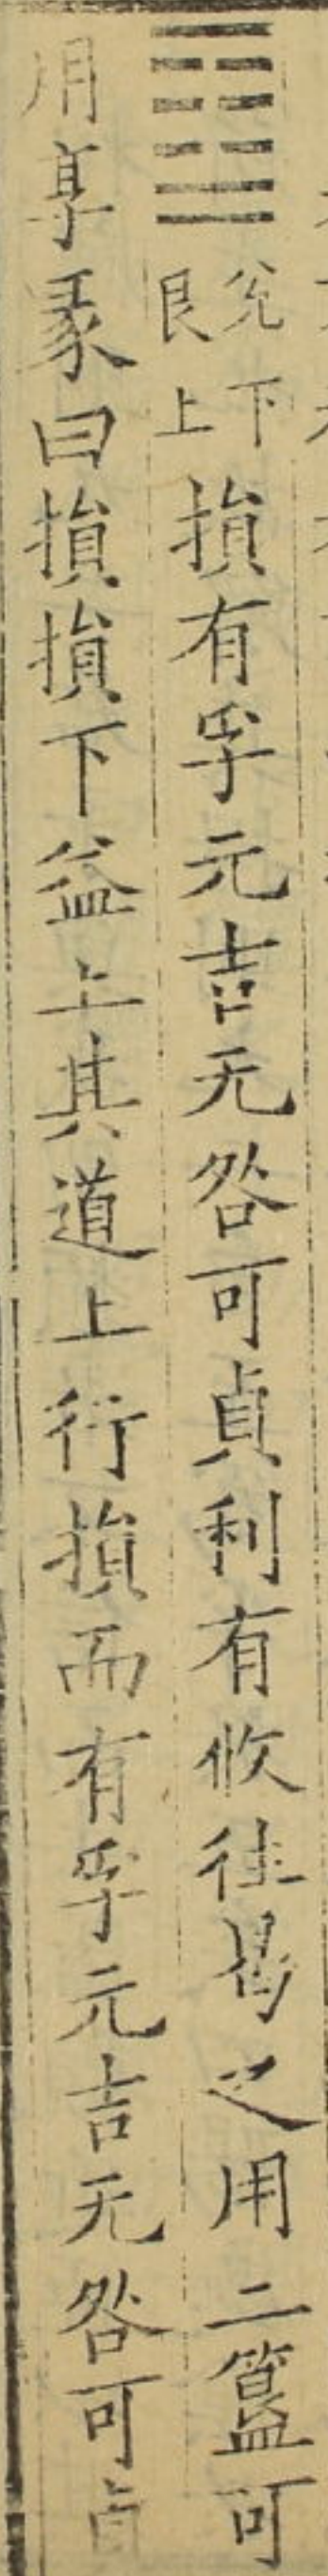 ䷨兌下艮上損有孚元吉无咎可貞利有攸往曷之用二簋可
用享彖曰損損下益上其道上行損而有孚元吉无咎可貞